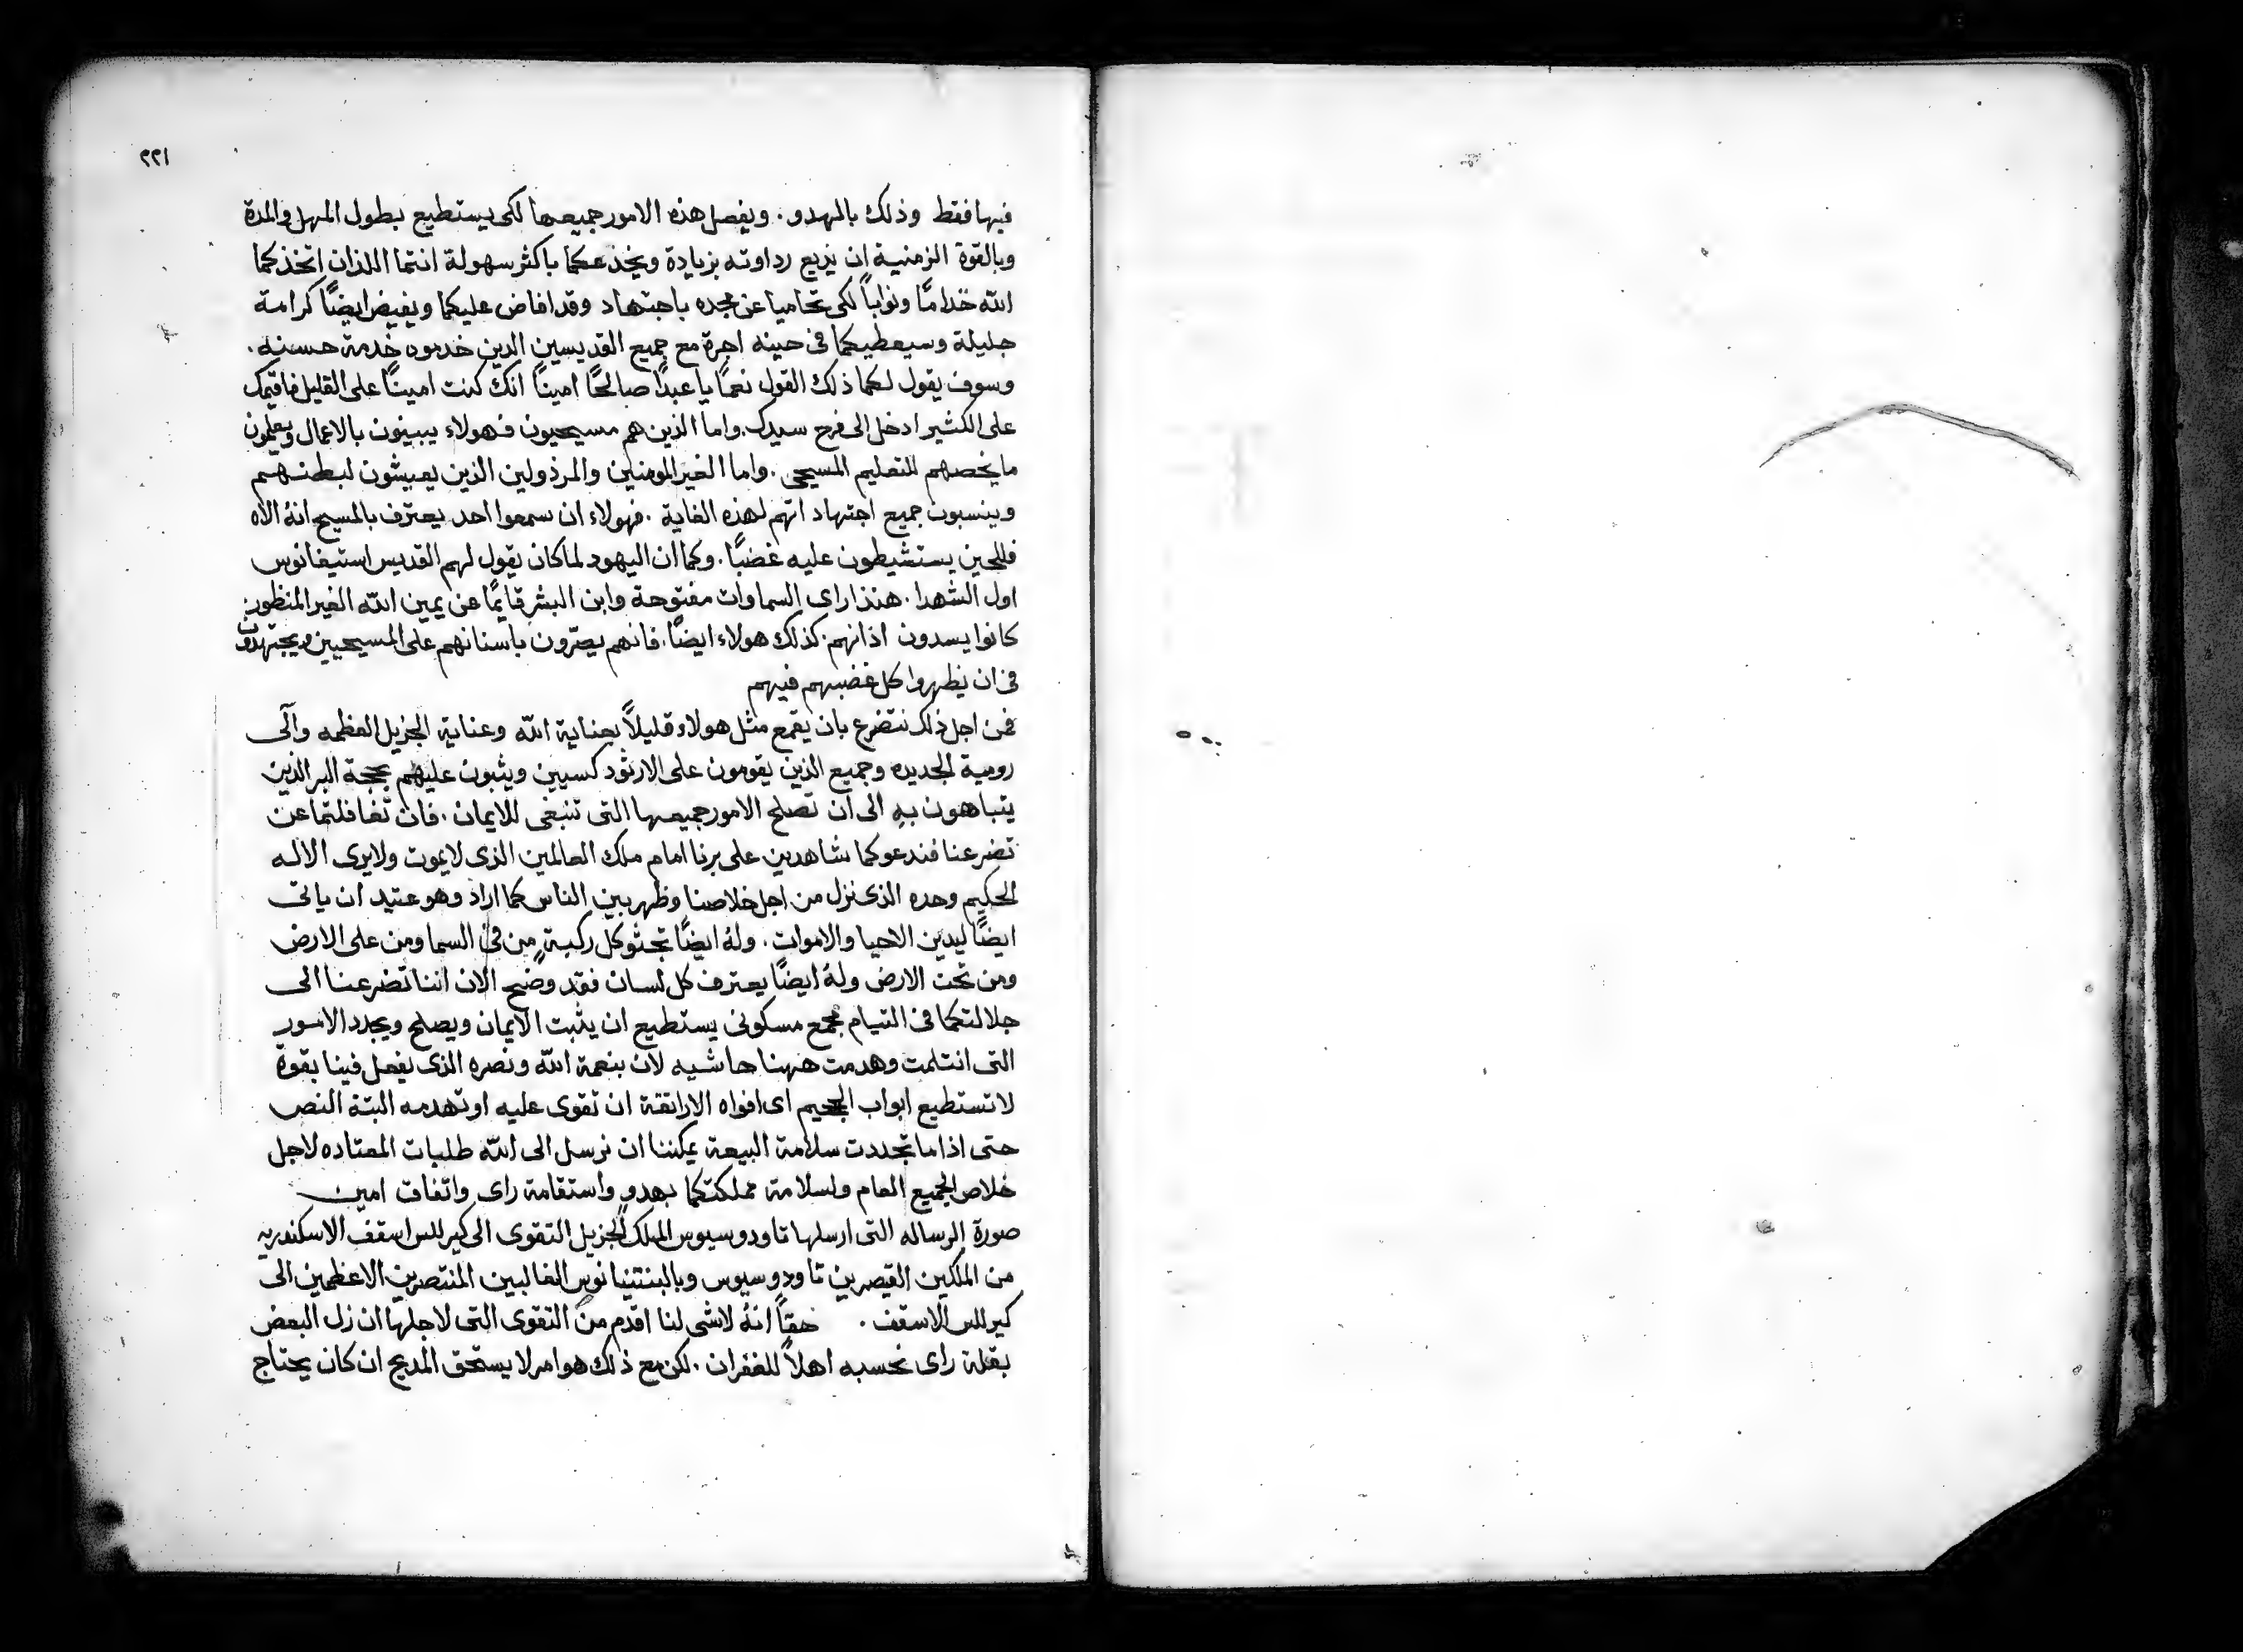 ٢٢١
فيها فقط وذلك بالهدو. ويفصل هذه الامور جميعها لكي يستطيع بطول المهل والمدة
وبالقوة الزمنية ان يذيع رداوته بزيادة ويخدعكما باكثر سهولة انتما اللذان اتخذكما
الله خدامًا ونوابًا لكي تحاميا عن مجده باجتهاد وقد افاض عليكما ويفيض ايضًا كرامة
جليلة وسيعطيكما في حينه اجرة مع جميع القديسين الدين خدموه خدمة حسنه.
وسوف يقول لكما ذلك القول نعمًا يا عبدًا صالحًا امينًا انك كنت امينًا على القليل فاقيمك
على الكثير ادخل الى فرح سيدك. واما الذين هم مسيحيون فهولاء يبينون بالاعمال ويعلمون
ما يخصهم للتعليم المسيحي. واما الغير المومنين والمرذولين الذين يعيشون لبطنهم
وينسبون جميع اجتهاداتهم لهذه الغاية. فهولاء ان سمعوا احد يعترف بالمسيح انهُ الاه
فللحين يستشيطون عليه غضبًا. وكما ان اليهود لما كان يقول لهم القديس استيفانوس
اول الشهدا. هنذا ارى السماوات مفتوحة وابن البشر قايمًا عن يمين الله الغير المنظور.
كانوا يسدون اذانهم. كذلك هولاء ايضًا. فانهم يصرّون باسنانهم على المسيحيين ويجتهدون
في ان يظهروا كل غضبهم فيهم
فمن اجل ذلك نتضرع بان يقمع مثل هولاء قليلاً بعناية الله وعناية الجزيل العظمه والى
رومية الجديده وجميع الذين يقومون على الارثودكسيين ويثبون عليهم بحجة البر الذين
يتباهون به الى ان تصلح الامور جميعها التي تنبغي للايمان. فان تغافلتما عن
تضرعنا فندعوكما شاهدين على برنا امام ملك العالمين الذى لا يموت ولا يرى الاله
الحكيم وحده الذى نزل من اجل خلاصنا وظهر بين الناس كما اراد وهو عتيد ان ياتى
ايضًا ليدين الاحيا والاموات. ولهُ ايضًا تجثو كل ركبةٍ من في السما ومن على الارض
ومن تحت الارض ولهُ ايضًا يعترف كل لسان فقد وضح الان اننا تضرعنا الى
جلالتكما في التيام مجمع مسكوني يستطيع ان يثبت الايمان ويصلح ويجدد الامور
التى انتلمت وهدمت ههنا حاشيه لان بنعمة الله ونصره الذى يفعل فينا بقوة
لا تستطيع ابواب الجحيم اى افواه الاراتقة ان تقوى عليه او تهدمه البتة النص
حتى اذا ما تجددت سلامة البيعة يمكننا ان نرسل الى الله طلبات المعتاده لاجل
خلاص الجميع العام ولسلامة مملكتكما بهدوٍ واستقامة راى واتفاق امين
صورة الرساله التى ارسلها تاودوسيوس الملك الجزيل التقوى الى كيرللس اسقف الاسكندريه
من الملكين القيصرين تاودوسيوس وبالبنتنيانوس الغالبين المنتصرين الاعظمين الى
كيرللس الاسقف. حقًا انهُ لا شى لنا اقدم من التقوى التى لاجلها ان زل البعض
بقلة راى نحسبه اهلاً للغفران. لكن مع ذلك هو امر لا يستحق المديح ان كان يحتاج